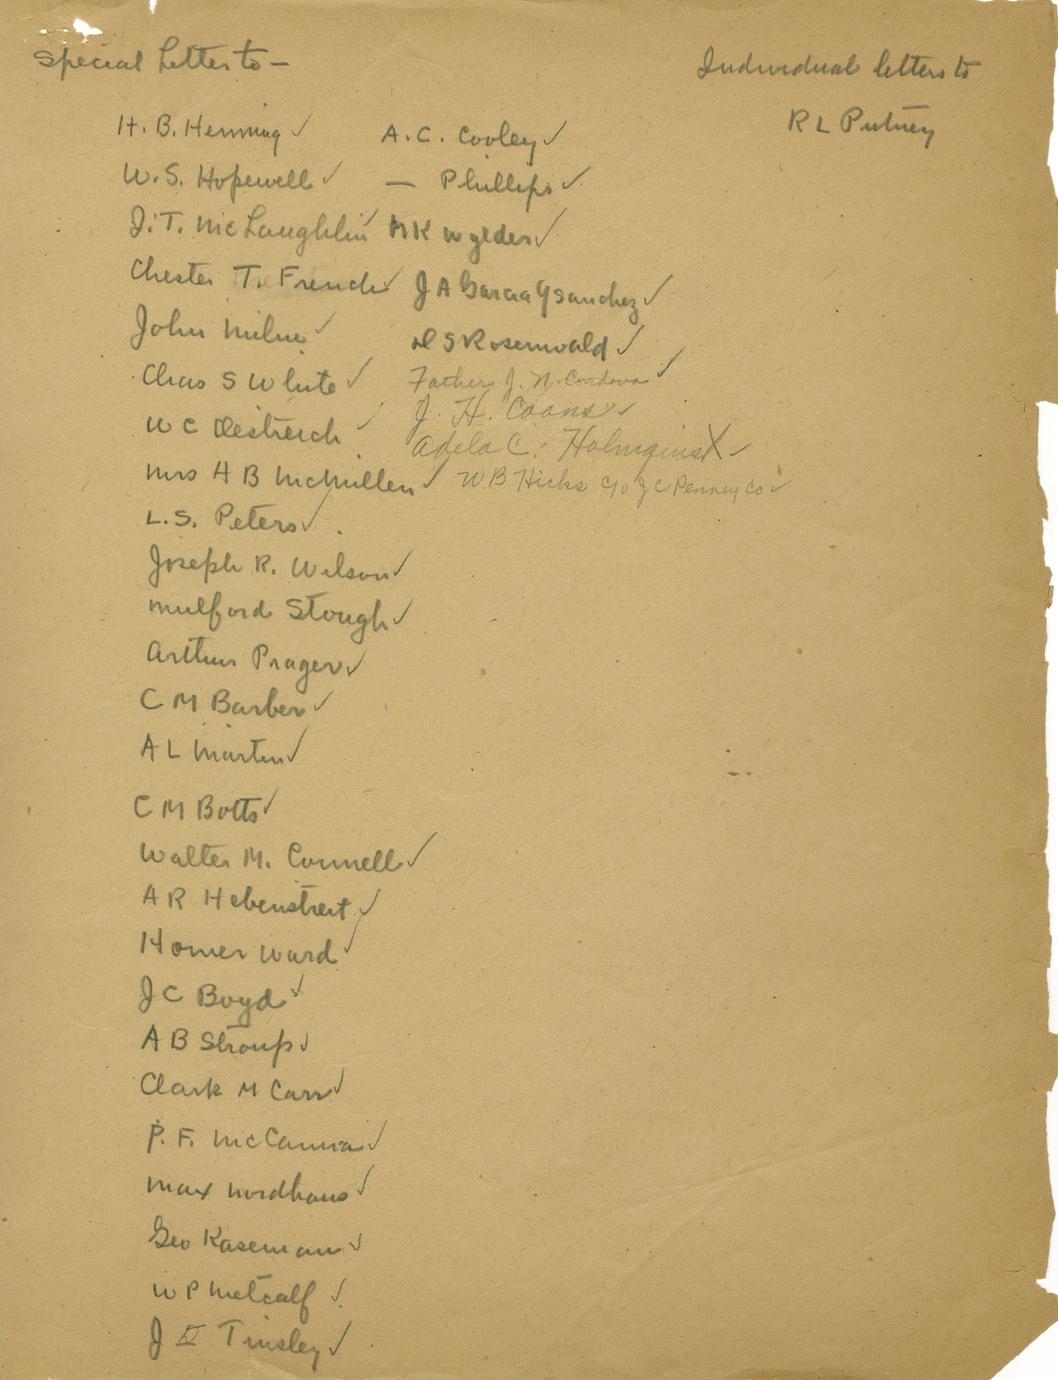 Special Letter to —
H. B. Henning ✓
W. S. Hopewell ✓
J. T. McLaughlin ✓
Chester T. French ✓
John Milne ✓
Chas S White ✓
W C Oestreich ✓
Mrs H B McMillen ✓
L. S. Peters ✓
Joseph R. Wilson ✓
Mulford Stough ✓
Arthur Prager ✓
C M Barber ✓
A L Martin ✓
C M Botts ✓
Walter M. Connell ✓
A R Hebenstreit ✓
Homer Ward ✓
J C Boyd ✓
A B Stroup ✓
Clark M Carr ✓
P. F. McCanna ✓
Max Nordhaus ✓
Geo Kaseman ✓
W P Metcalf ✓
J Tinsley ✓
A. C. Cooley ✓
— Phillips ✓
M K Wylder ✓
J A Garcia y Sanchez ✓
D S Rosenwald ✓
Father J. N. Cordova ✓
J. H. Coons ✓
Adela C. Holmquist ✓
W B Hicks c/o J C Penney Co ✓
Individual letters to
R L Putney